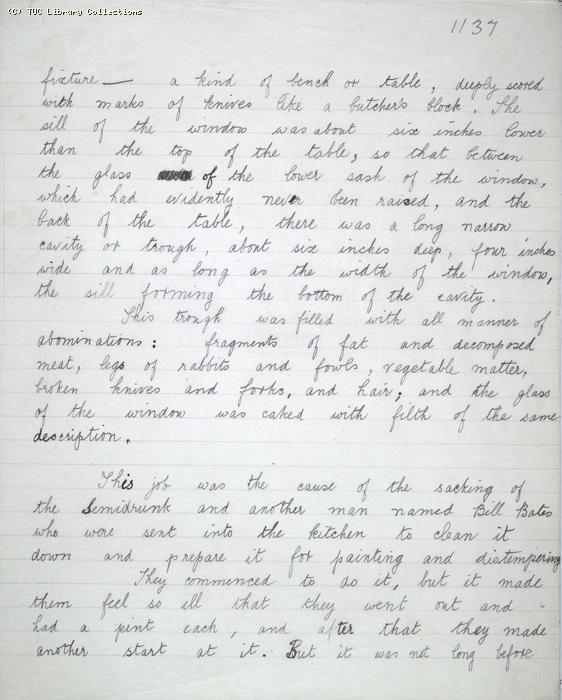 (C) TUC Library Collections
1137
fixture — a kind of bench or table, deeply scored
with marks of knives like a butcher's block. The
sill of the window was about six inches lower
than the top of the table, so that between
the glass of the lower sash of the window,
which had evidently never been raised, and the
back of the table, there was a long narrow
cavity or trough, about six inches deep, four inches
wide and as long as the width of the window,
the sill forming the bottom of the cavity.
This trough was filled with all manner of
abominations: fragments of fat and decomposed
meat, legs of rabbits and fowls, vegetable matter,
broken knives and forks, and hair; and the glass
of the window was caked with filth of the same
description.
This job was the cause of the sacking of
the Semidrunk and another man named Bill Bates
who were sent into the kitchen to clean it
down and prepare it for painting and distempering
They commenced to do it, but it made
them feel so ill that they went out and
had a pint each, and after that they made
another start at it. But it was not long before